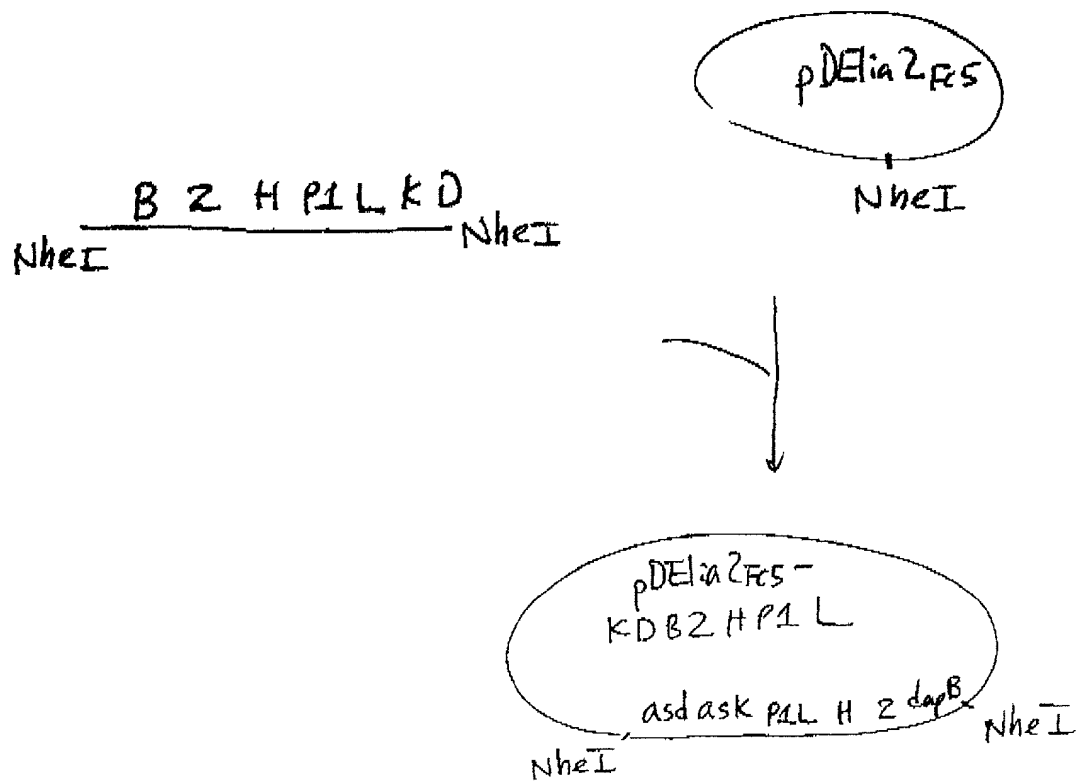 pDElia2FC5
NheI
B Z H P1 L K D
NheI
NheI
pDElia2FC5-
KDBZHP1L
asd ask P1L H Z dapB
NheI
NheI